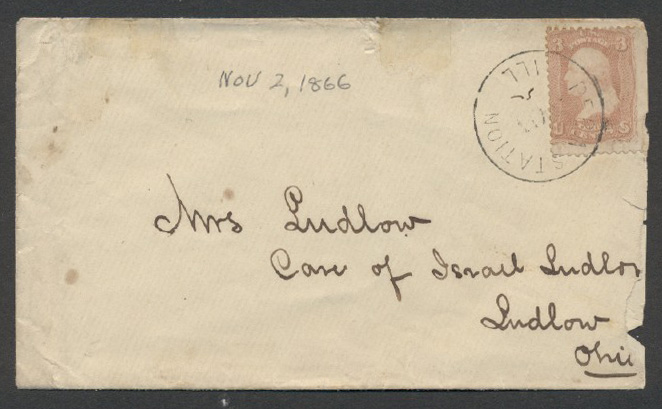 Nov 2, 1866
3 POSTAGE 3
STATION
ILL
U S
Mrs Ludlow
Care of Israel Ludlow
Ludlow
Ohio